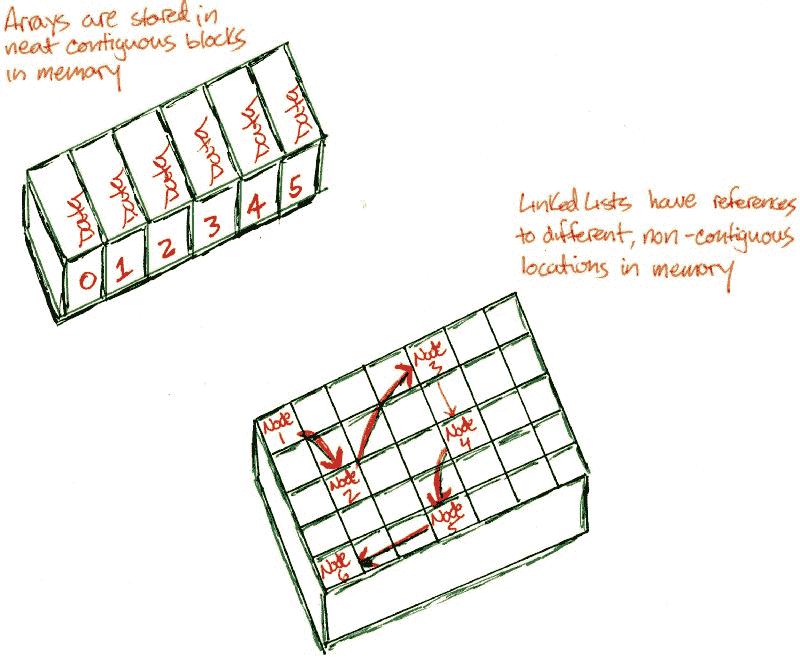 Arrays are stored in
neat contiguous blocks
in memory
Data Data Data Data Data Data
0 1 2 3 4 5
Linked Lists have references
to different, non-contiguous
locations in memory
Node
1
Node
2
Node
3
Node
4
Node
5
Node
6